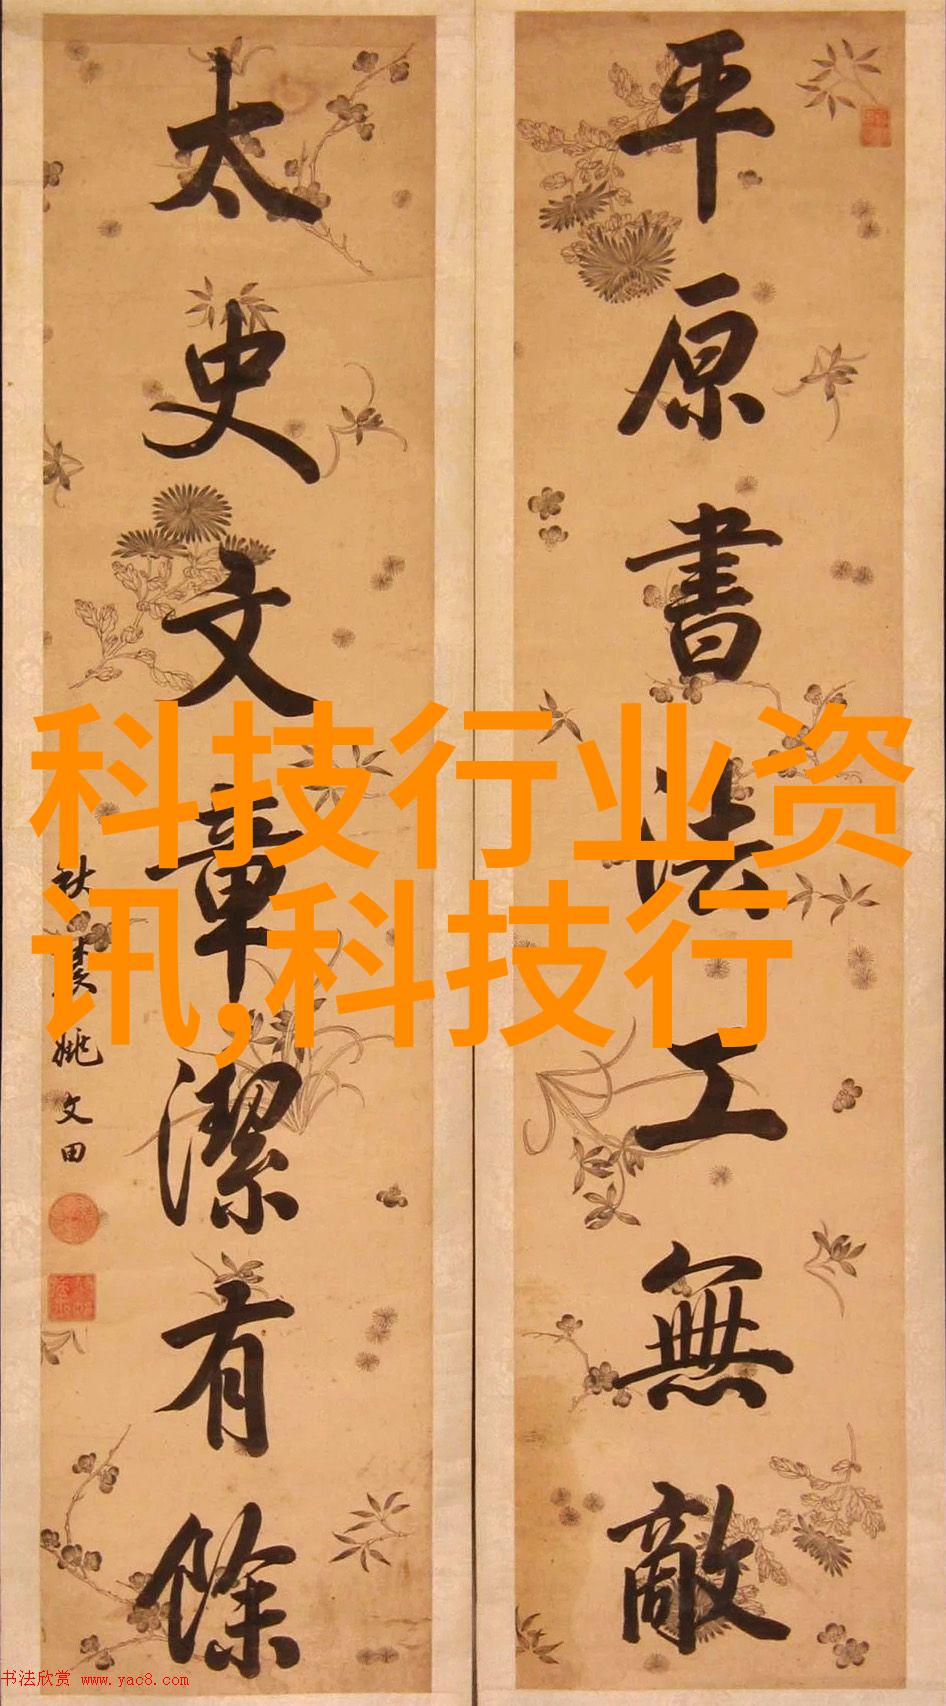 平原書法工無敵
太史文章潔有餘
秋農姚文田
科技行业资
讯,科技行
书法欣赏 www.yac8.com